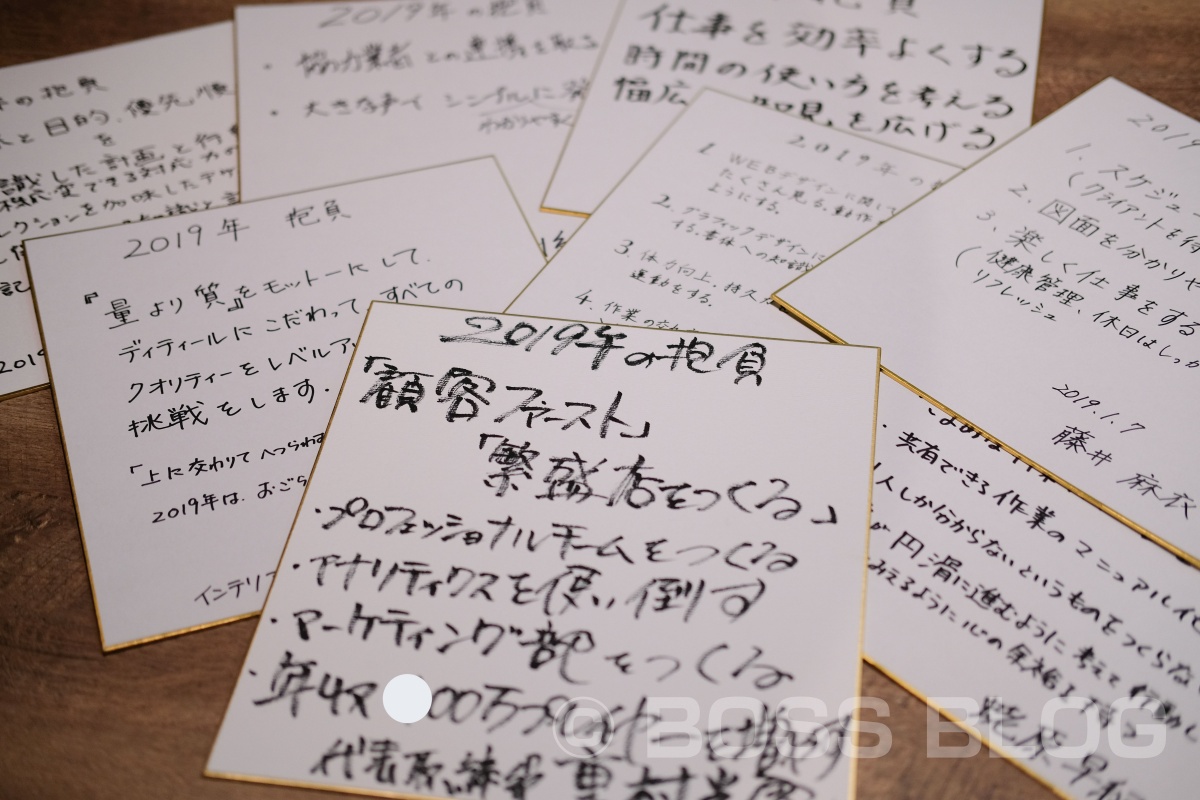 2019年の抱負
「顧客ファースト」
「繁盛店をつくる」
・プロフェッショナルチームをつくる
・アナリティクスを使い倒す
・マーケティング部をつくる
・年収 00万プレイヤーを増やす
代表取締役
2019年 抱負
『量より質』をモットーにして、
ディティールにこだわって、すべての
クオリティーをレベルア
挑戦をします。
「上に交わりてへつらわず
2019年は、おごら
インテリア
の抱負
と目的、優先順
を
識した計画と行
できる対応力
クションを加味したデザ
記
2019
2019年の抱負
・協力業者との連携を取る
・大きな声で シンプルに
わかりやすく
抱負
仕事を効率よくする
時間の使い方を考える
幅広 知見を広げる
2019年の
1. WEBデザインに関して
たくさん見る。動作
ようにする。
2. グラフィックデザインに
する。書体への知識
3. 体力向上、持久力
運動をする。
4. 作業の
2019
1. スケジュ
(クライアントを待
2. 図面を分かりや
3. 楽しく仕事をする
(健康管理、休日はしっか
リフレッシュ
2019.1.7
藤井 麻衣
・共有できる作業のマニュアル化
人しか分からないというものをつくらない
が円滑に進むように考えて行動し
みえるように心の余裕を
© BOSS BLOG